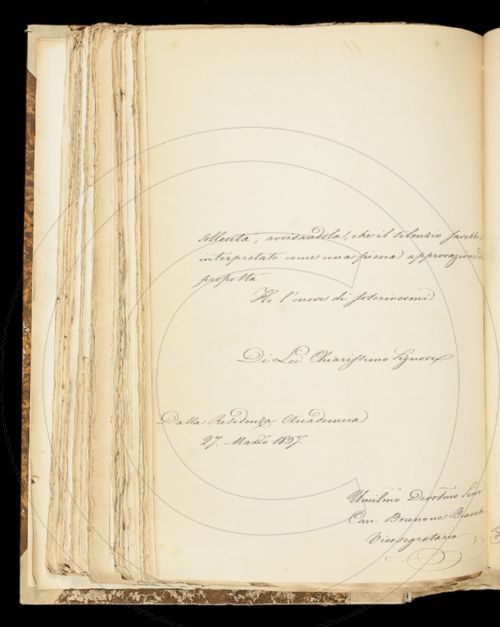 sollecita, avvisandola, che il silenzio sarebbe
interpretato come una piena approvazione
proposta
Ho l'onore di soscrivermi
Di Lei Chiarissimo Signore
Dalla Residenza Accademica
27. Marzo 1837.
Umilmo Devotmo
Can. Brunone
Vicesegretario